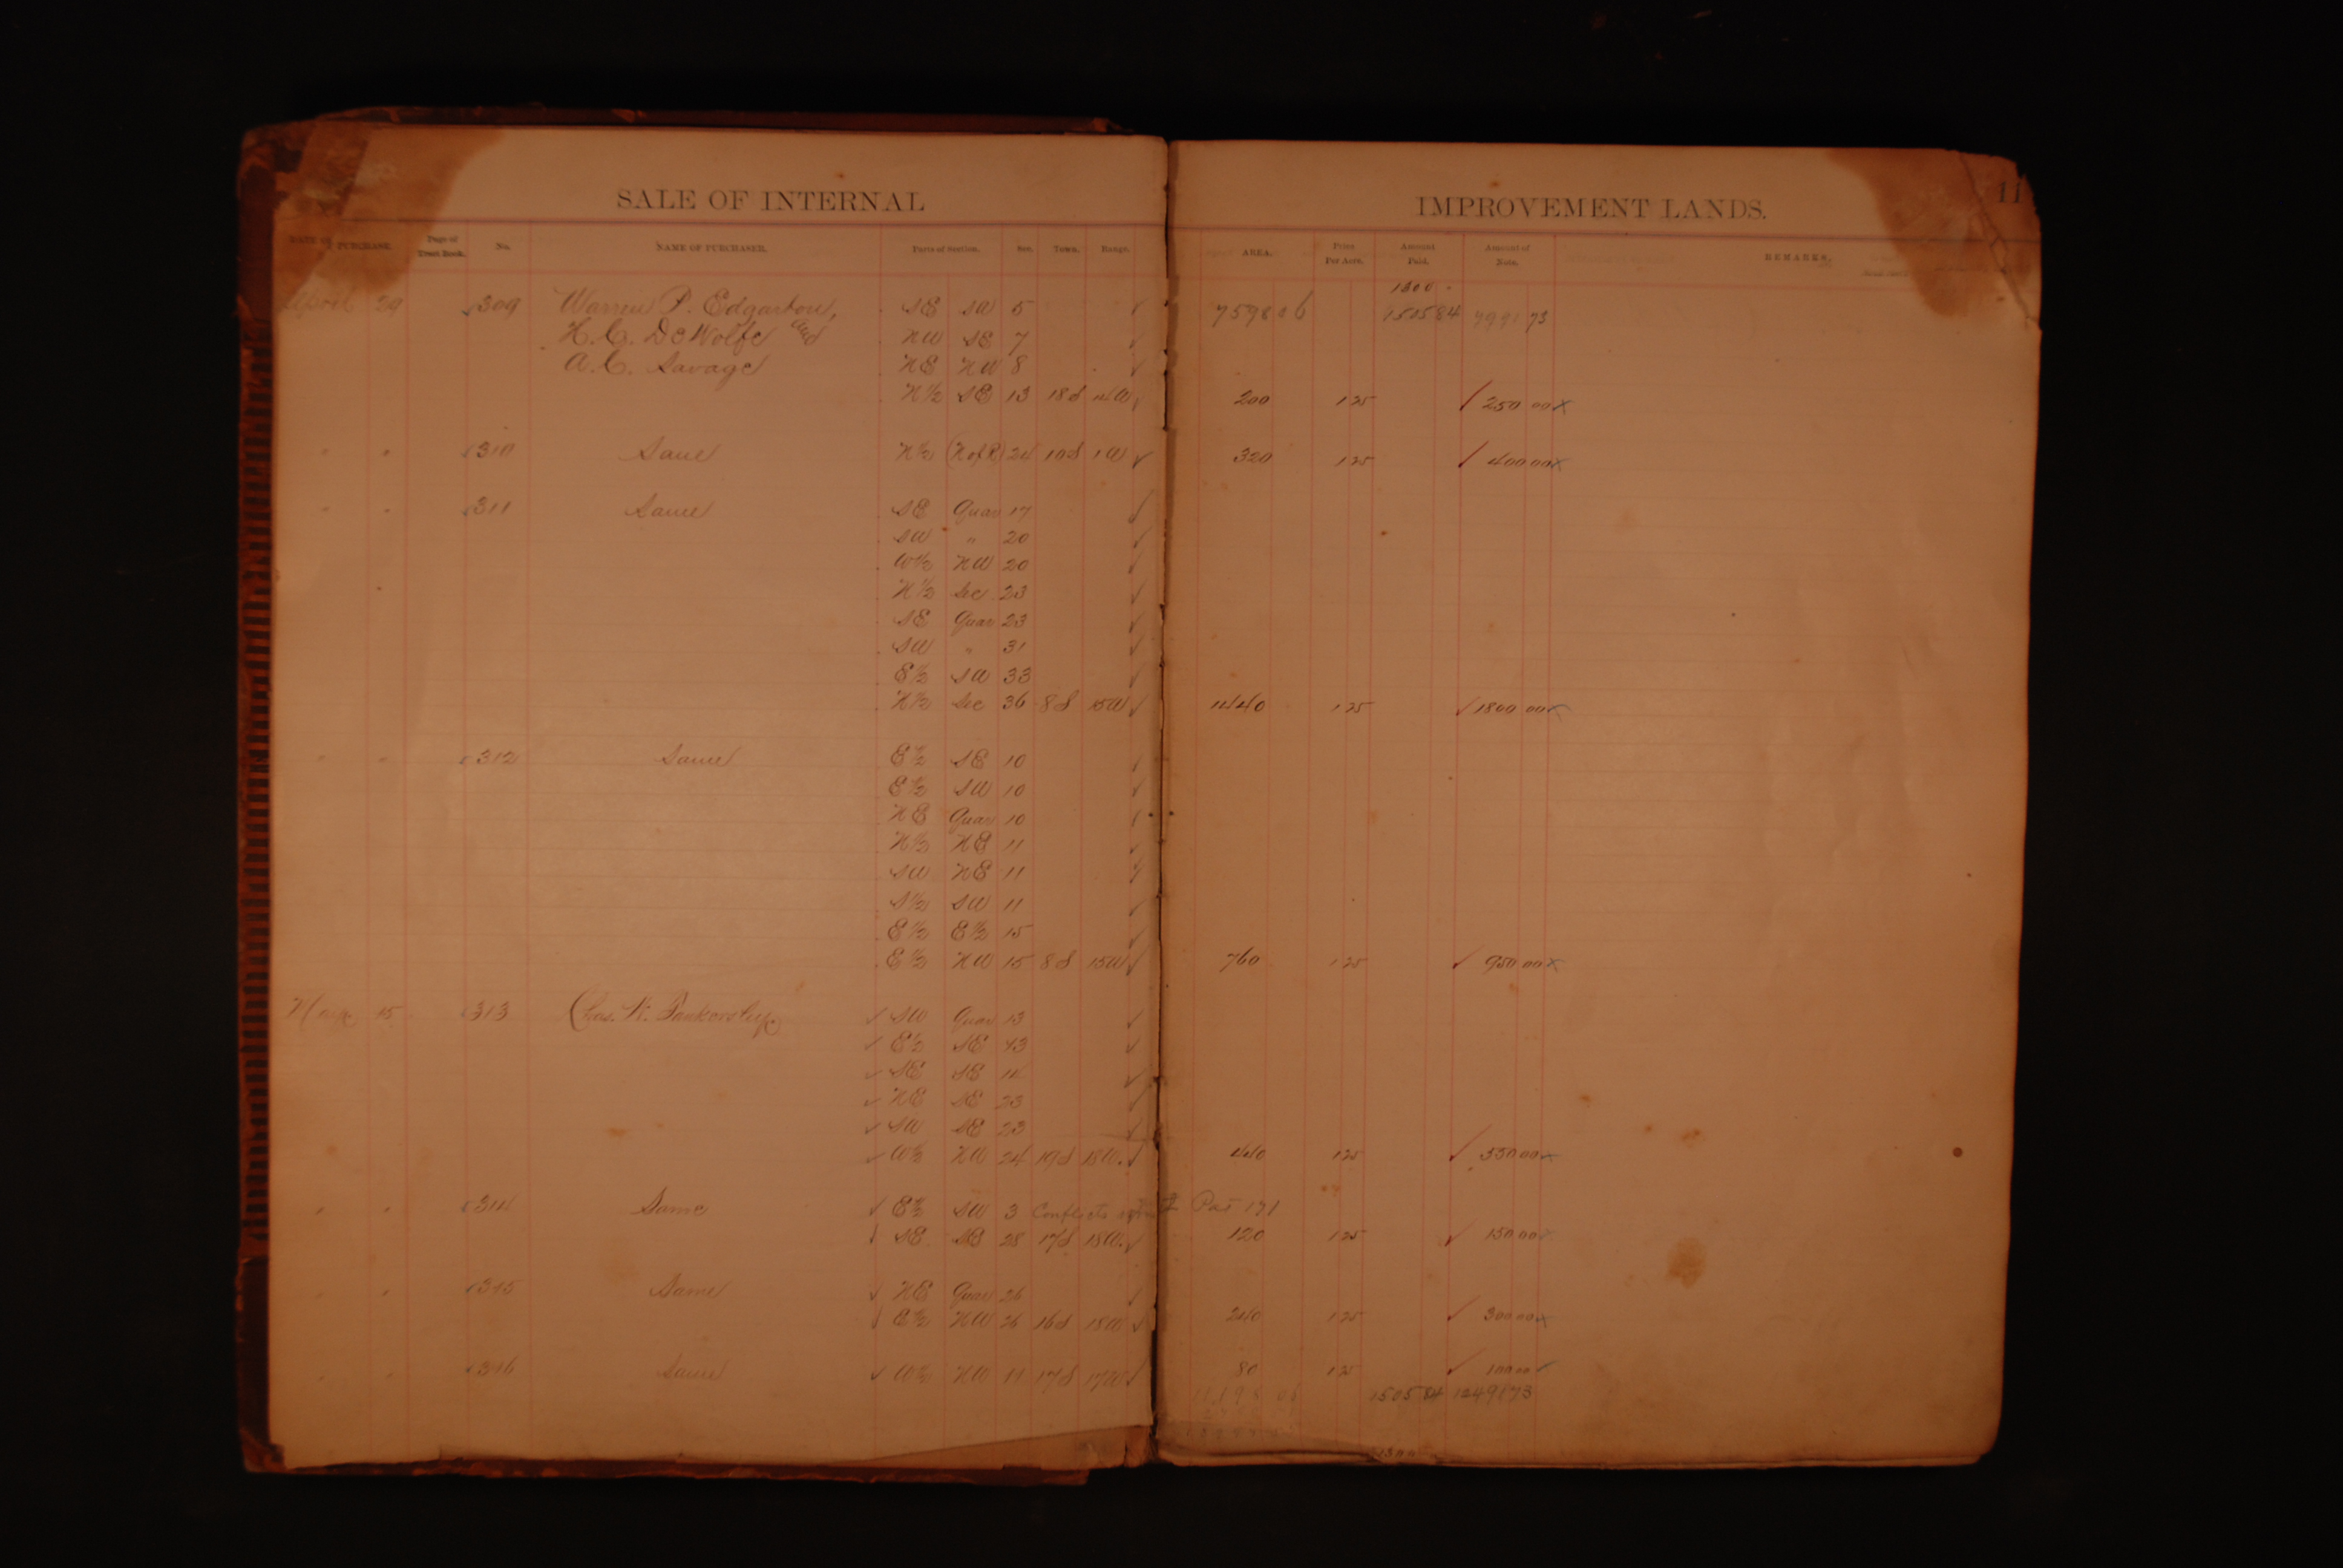 SALE OF INTERNAL IMPROVEMENT LANDS. 11
DATE OF PURCHASE. Page of Tract Book. No. NAME OF PURCHASER. Parts of Section. Sec. Town. Range. AREA. Price Per Acre. Amount Paid. Amount of Note. REMARKS.
1300
April 29 309 Warren P. Edgarton, SE SW 5 ✓ 7598 06 1505 84 7991 73
H. C. DeWolfe and NW SE 7 ✓
A. C. Savage NE NW 8 ✓
N½ SE 13 18S 4W 200 1 25 ✓ 250 00 x
" " 310 Same N½ (N of R) 24 10S 1W ✓ 320 1 25 ✓ 400 00 x
" " 311 Same SE Quar 17 ✓
SW " 20 ✓
W½ NW 20 ✓
N½ Sec 23 ✓
SE Quar 23 ✓
SW " 31 ✓
E½ SW 33 ✓
N½ Sec 36 8S 15W ✓ 1440 1 25 ✓ 1800 00 x
" " 312 Same E½ SE 10 ✓
E½ SW 10 ✓
NE Quar 10 ✓
N½ NE 11 ✓
SW NE 11 ✓
S½ SW 11 ✓
E½ E½ 15 ✓
E½ NW 15 8S 15W ✓ 760 1 25 ✓ 950 00 x
15 313 Chas. W. ✓ SW Quar 13 ✓
✓ E½ SE 13 ✓
✓ SE SE 14 ✓
✓ NE SE 23 ✓
✓ SW SE 23 ✓
✓ W½ NW 24 19S 18W. ✓ 440 1 25 ✓ 550 00 x
" " 314 Same ✓ E½ SW 3 Conflicts Pat 171
✓ SE SE 28 17S 18W. ✓ 120 1 25 ✓ 150 00 x
" " 315 Same ✓ NE Quar 26 ✓
✓ E½ NW 26 16S 18W ✓ 240 1 25 ✓ 300 00 x
" " 316 Same ✓ W½ NW 11 17S 17W ✓ 80 1 25 ✓ 100 00 ✓
11198 06 1505 84 12491 73
1300